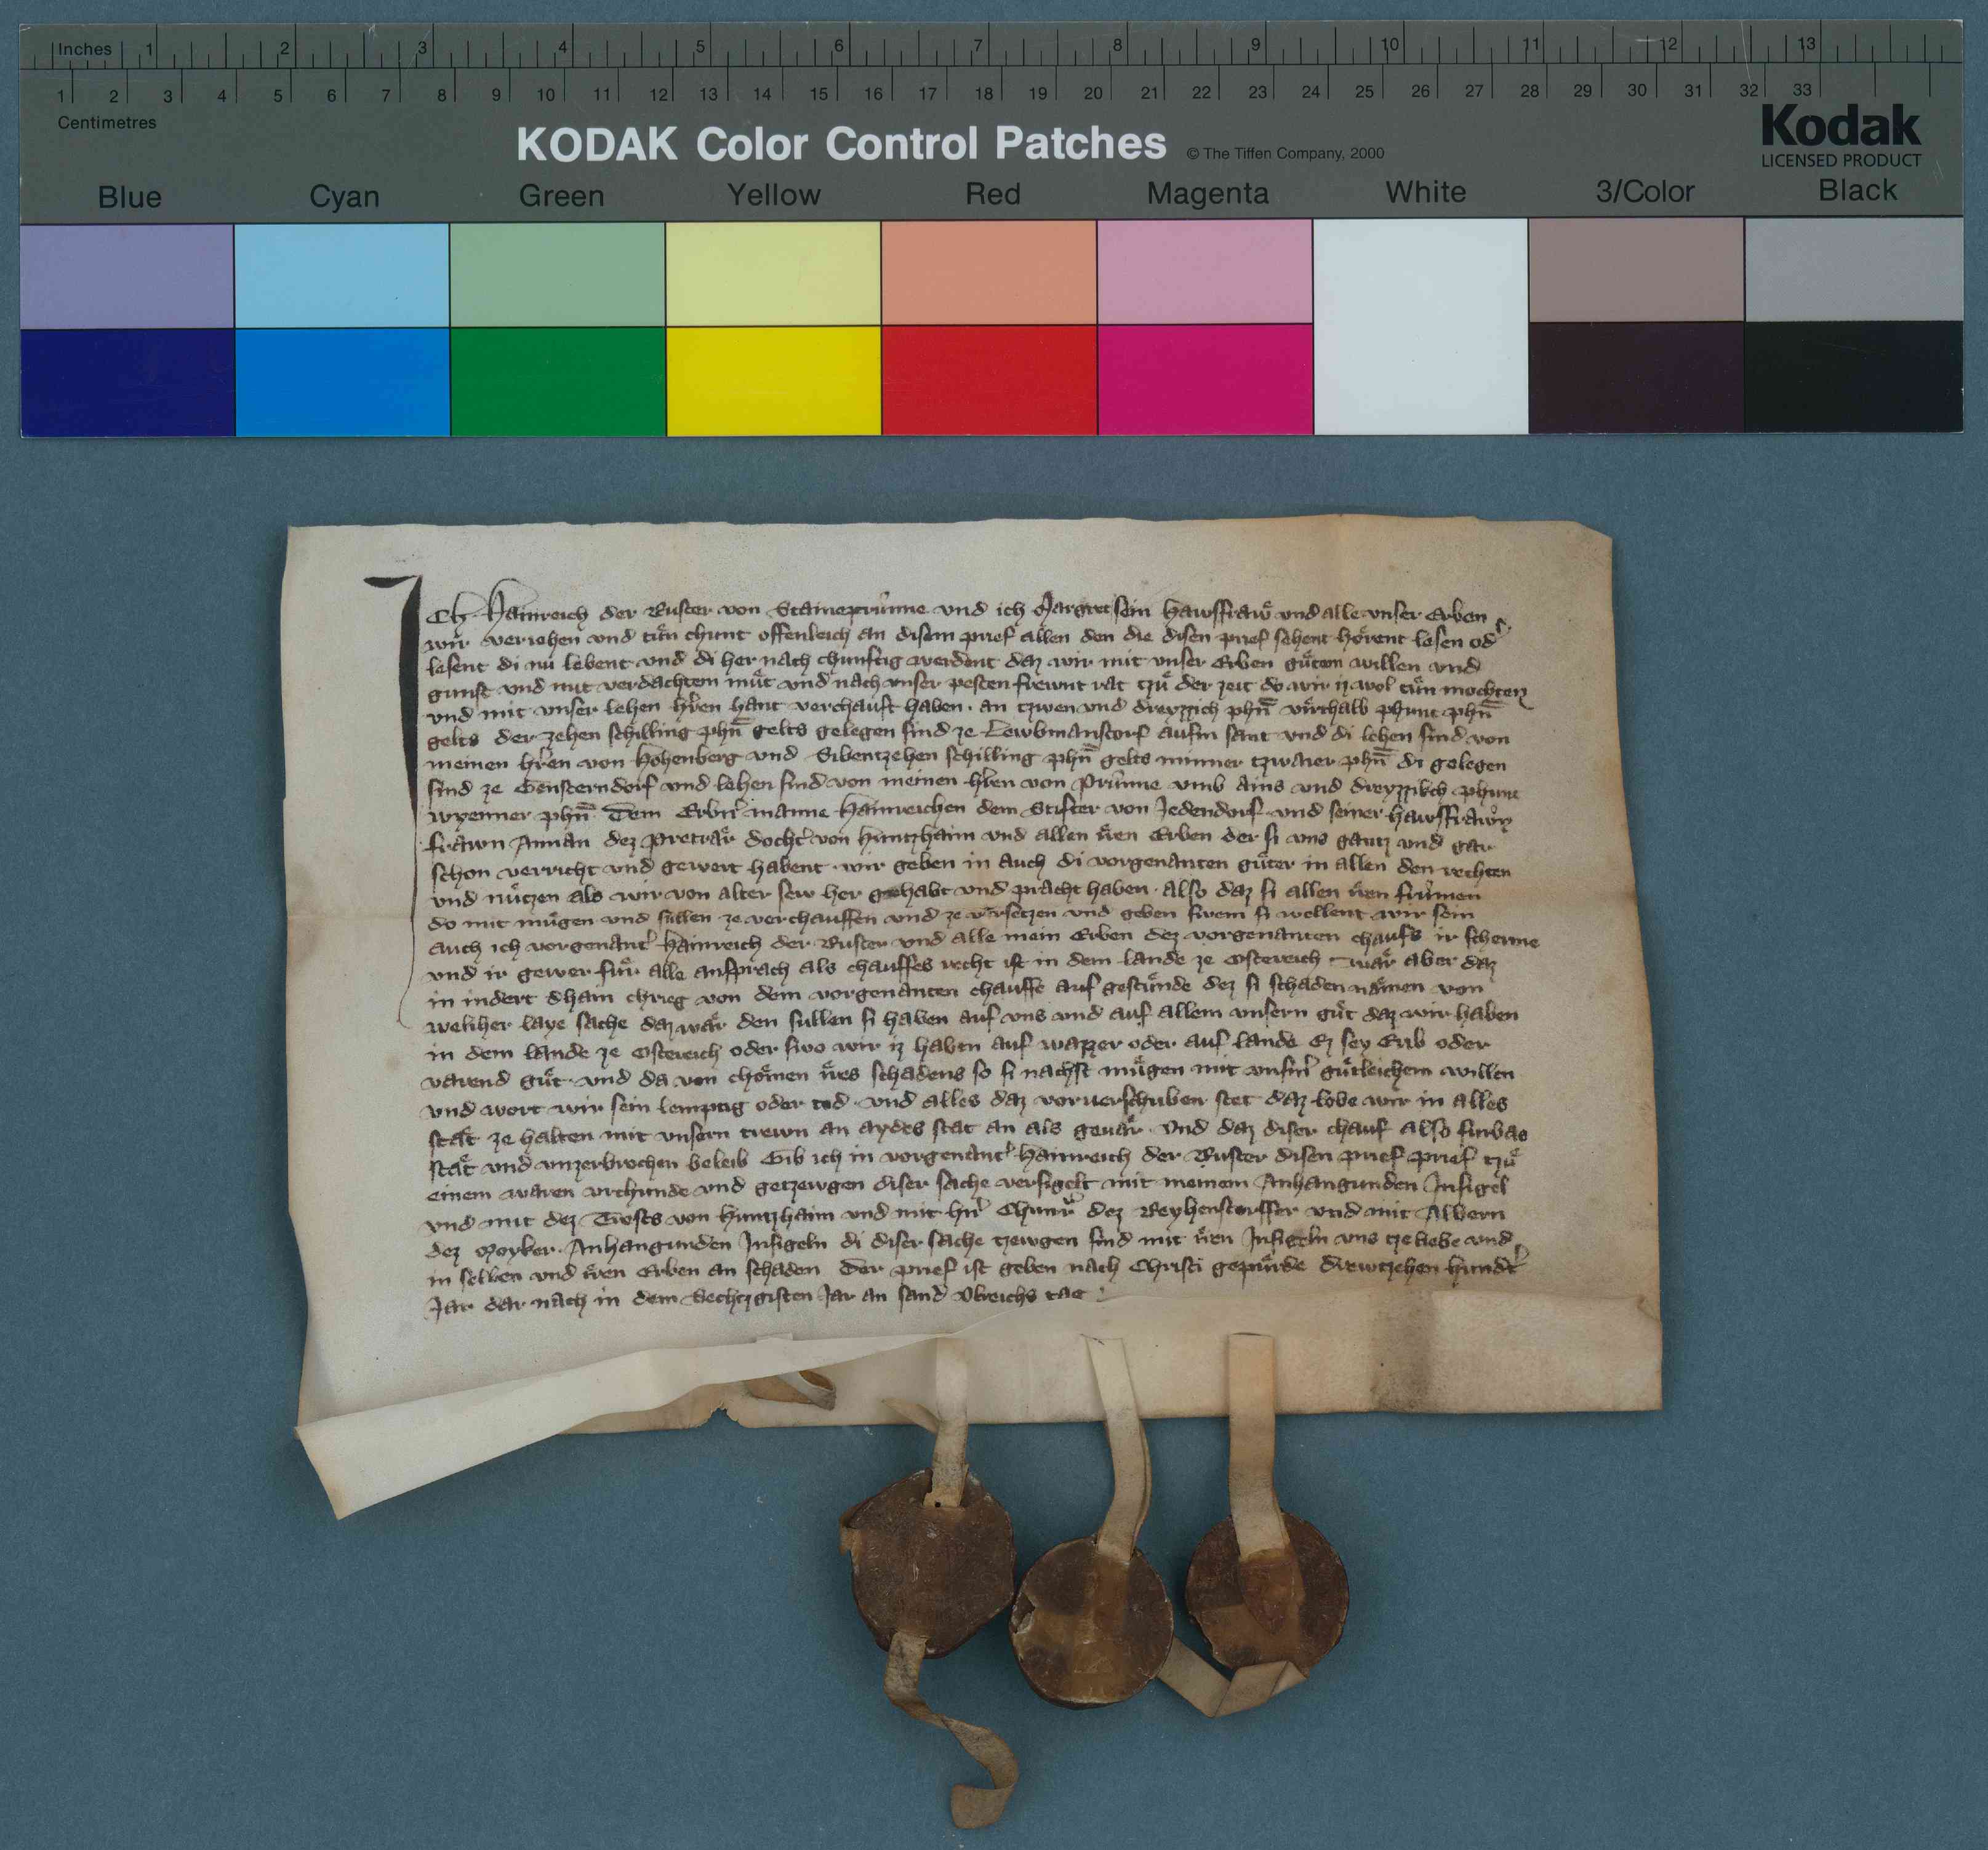 Inches 1 2 3 4 5 6 7 8 9 10 11 12 13
1 2 3 4 5 6 7 8 9 10 11 12 13 14 15 16 17 18 19 20 21 22 23 24 25 26 27 28 29 30 31 32 33
Centimetres
KODAK Color Control Patches © The Tiffen Company, 2000
Kodak
LICENSED PRODUCT
Blue Cyan Green Yellow Red Magenta White 3/Color Black
Ich Hainreich der Ruster von Staineprunne und ich Margret sein hawsfrawͤ und alle unser Erben
wir veriehen und tuͤn chunt offenleich an disem prief allen den die disen prief sehent hoͤrent lesen od
lesent di nu lebent und di her nach chunftig werdent daz wir mit unser Erben guͤtem willen und
gunst und mit verdachtem muͤt und nach unser pesten frewnt rat tzuͤ der zeit do wir iz wol tuͤn mochten
und mit unser lehen hren hant verchauft haben · an tzwen und dreyzzich phn̄ virͤthalb phunt phn̄
gelts der zehen schilling phn̄ gelts gelegen sind ze Lewbmanstorf aufm sant und di lehen sind von
meinen hren von Hohenberg und Sibentzehen schilling phn̄ gelts minner tzwaier phn̄ di gelegen
sind ze Gensterndorf und lehen sind von meinen hren von Prunne umb Ains und dreyzzikch phunt
wyenner phn̄ Dem Erbn manne Hainreichen dem Stifter von Jedendorf und seiner hawsfrawn
frawn Annan dez Pretrarͤ docht von Huntzhaim und allen iren Erben der si uns gantz und gar
schon verricht und gewert habent · wir geben in auch di vorgenanten guͤter in allen den rechten
und nuͤtzen als wir von alter sew her gehabt und pracht haben · also daz si allen iren frumen
do mit muͤgen und sullen ze verchauffen und ze versetzen und geben swem si wellent wir sein
auch ich vorgenant Hainreich der Ruster und alle mein Erben dez vorgenanten chaufs ir scherme
und ir gewer fuͤr alle ansprach als chauffes recht ist in dem lande ze Osterreich warͤ aber daz
in indert dhain chrieg von dem vorgenanten chauffe auf gestuͤnde dez si schaden naͤmen von
welicher laye sache daz warͤ den sullen si haben auf uns und auf allem unsern guͤt daz wir haben
in dem lande ze Osterreich oder swo wir iz haben auf wazzer oder auf lande Ez sey Erib oder
varend guͤt · und da von choͤmen ires schadens so si nachst muͤgen mit unsm guͤtleichem willen
und wort wir sein lemptig oder tod · und alles daz vorverschriben stet daz lobe wir in alles
statͤ ze halten mit unsern trewn an aydes stat an als gevarͤ · Und daz diser chauf also furbas
statͤ und unzerbrochen beleib Gib ich in vorgenant Hainreich der Ruster disen prief prief tzuͤ
einem waren urchunde und getzewgen diser sache versigelt mit meinem Anhangunden Insigel
und mit dez Trosts von Huntzhaim und mit hn Chunr dez Reyhenstorffer und mit Albern
dez Anhangunden Insigeln di diser sache tzewgen sind mit iren Insigeln uns tze liebe und
in selben und iren Erben an schaden Der prief ist geben nach Christi gepurͤde drewtzehen hundt
Jar dar nach in dem Sechtzgisten Jar an sand Ulreichs tag